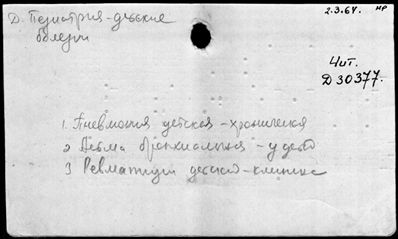 Д. Педиатрия - детские
болезни
2.3.64. нр
Чит.
Д30377.
1. Пневмония детская - хроническая
2 Астма бронхиальная - у детей
3 Ревматизм детский - клиника